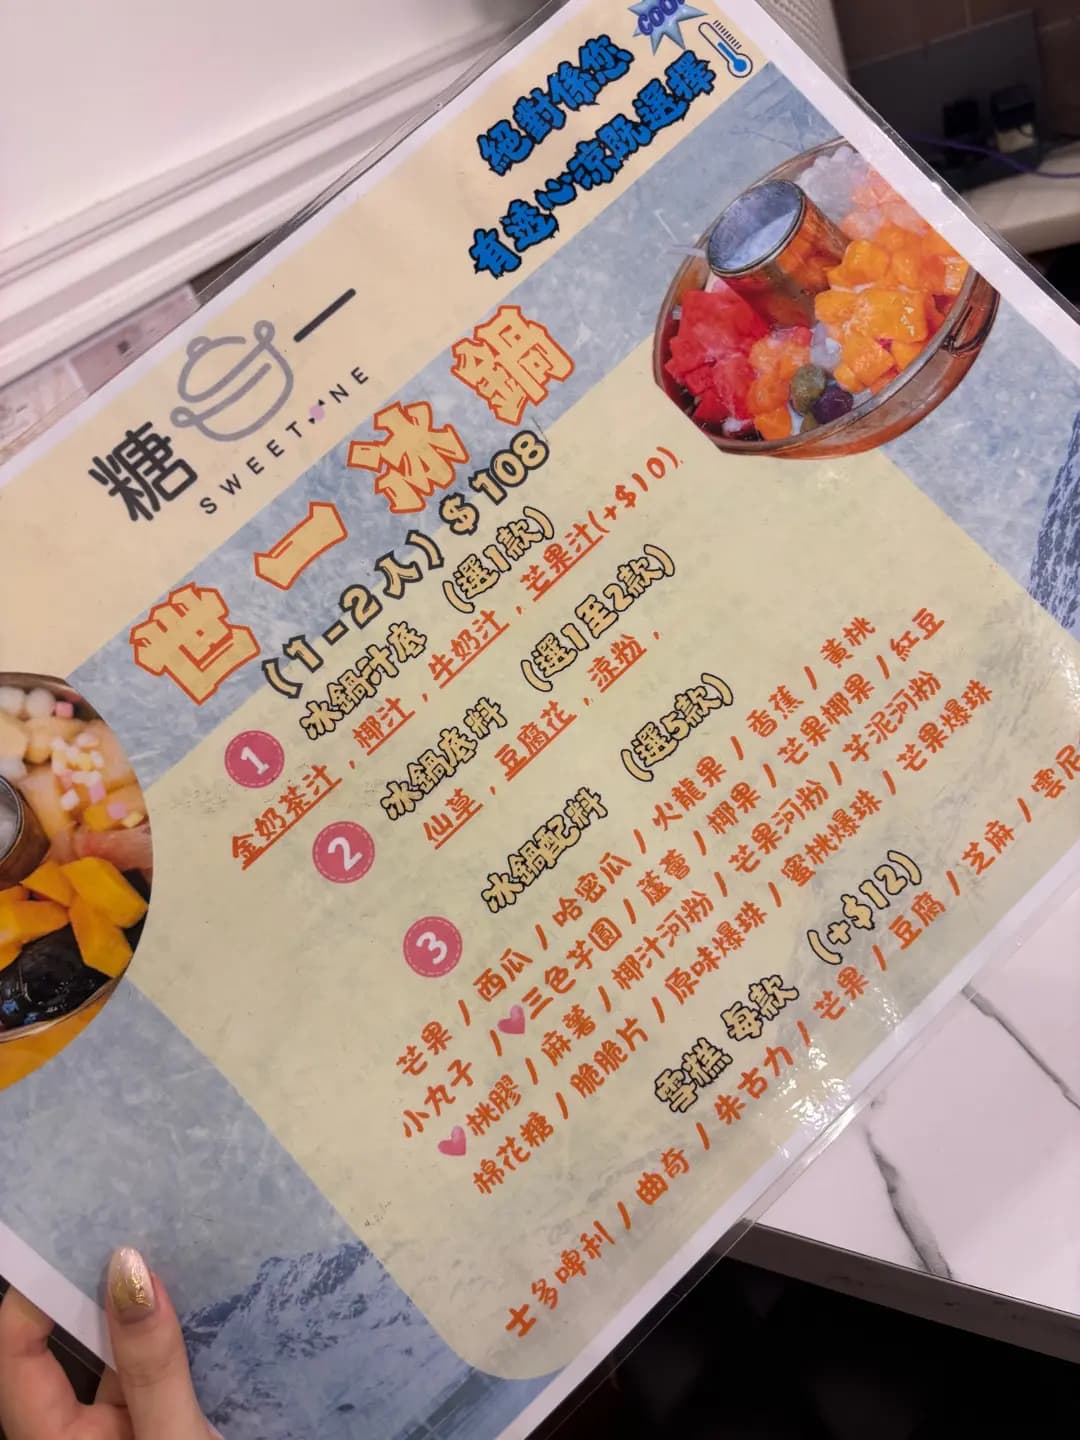 COOL
絕對係您
有透心涼既選擇
糖一
SWEETONE
世一冰鍋
(1-2人) $108
1 冰鍋汁底 (選1款)
金奶茶汁，椰汁，牛奶汁，芒果汁(+$10)
2 冰鍋底料 (選1至2款)
仙草，豆腐花，涼粉，
3 冰鍋配料 (選5款)
芒果 / 西瓜 / 哈密瓜 / 火龍果 / 香蕉 / 黃桃
小丸子 / 三色芋圓 / 蘆薈 / 椰果 / 芒果椰果 / 紅豆
桃膠 / 麻薯 / 椰汁河粉 / 芒果河粉 / 芋泥河粉
棉花糖 / 脆脆片 / 原味爆珠 / 蜜桃爆珠 / 芒果爆珠
雪糕 每款 (+$12)
士多啤利 / 曲奇 / 朱古力 / 芒果 / 豆腐 / 芝麻 / 雲尼